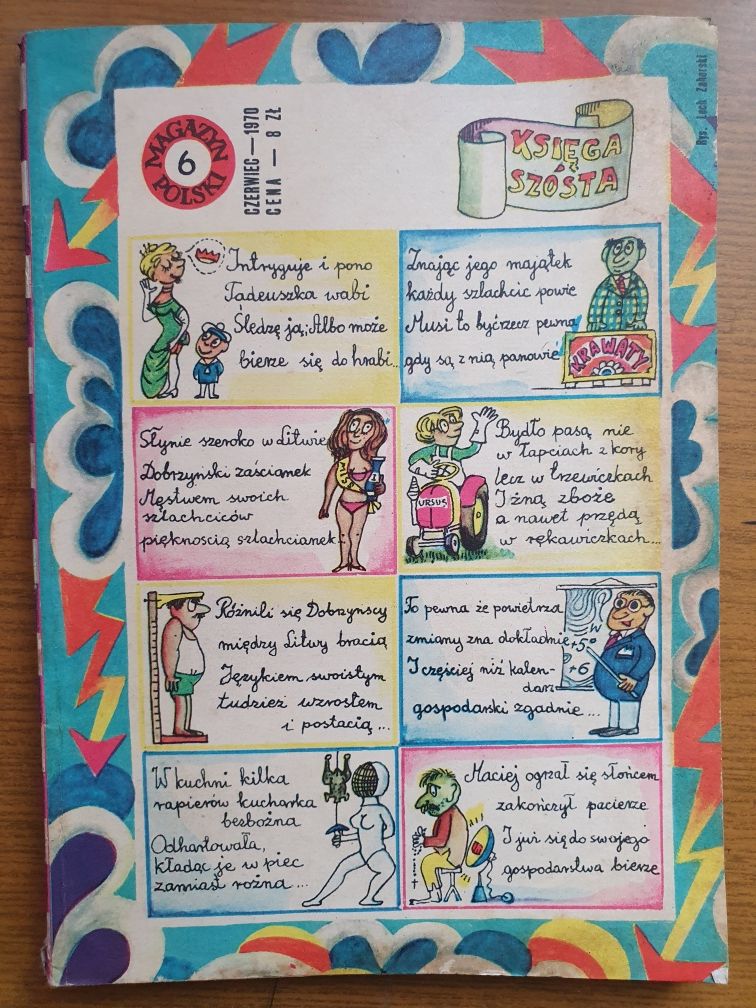 MAGAZYN
6
POLSKI
CZERWIEC — 1970
CENA — 8 ZŁ
KSIĘGA
SZÓSTA
Rys. Lech Zahorski
Intryguje i pono
Tadeuszka wabi
Śledzę ją; Albo może
bierze się do hrabi...
Znając jego majątek
każdy szlachcic powie
Musi to być rzecz pewna
gdy są z nią panowie
KRAWATY
Słynie szeroko w Litwie
Dobrzyński zaścianek
Męstwem swoich
szlachciców
pięknością szlachcianek...
Bydło pasą nie
w łapciach z kory
lecz w trzewiczkach
I żną zboże
a nawet przędą
w rękawiczkach...
URSUS
Różnili się Dobrzyńscy
między Litwy bracią
Językiem swoistym
tudzież wzrostem
i postacią...
To pewna że powietrza
zmiany zna dokładnie
I częściej niż kalen-
darz
gospodarski zgadnie...
W
+5°
+6
W kuchni kilka
rapierów kucharka
bezbożna
Odhartowała,
kładąc je w piec
zamiast rożna...
Maciej ogrzał się słońcem
zakończył pacierze
I już się do swojego
gospodarstwa bierze